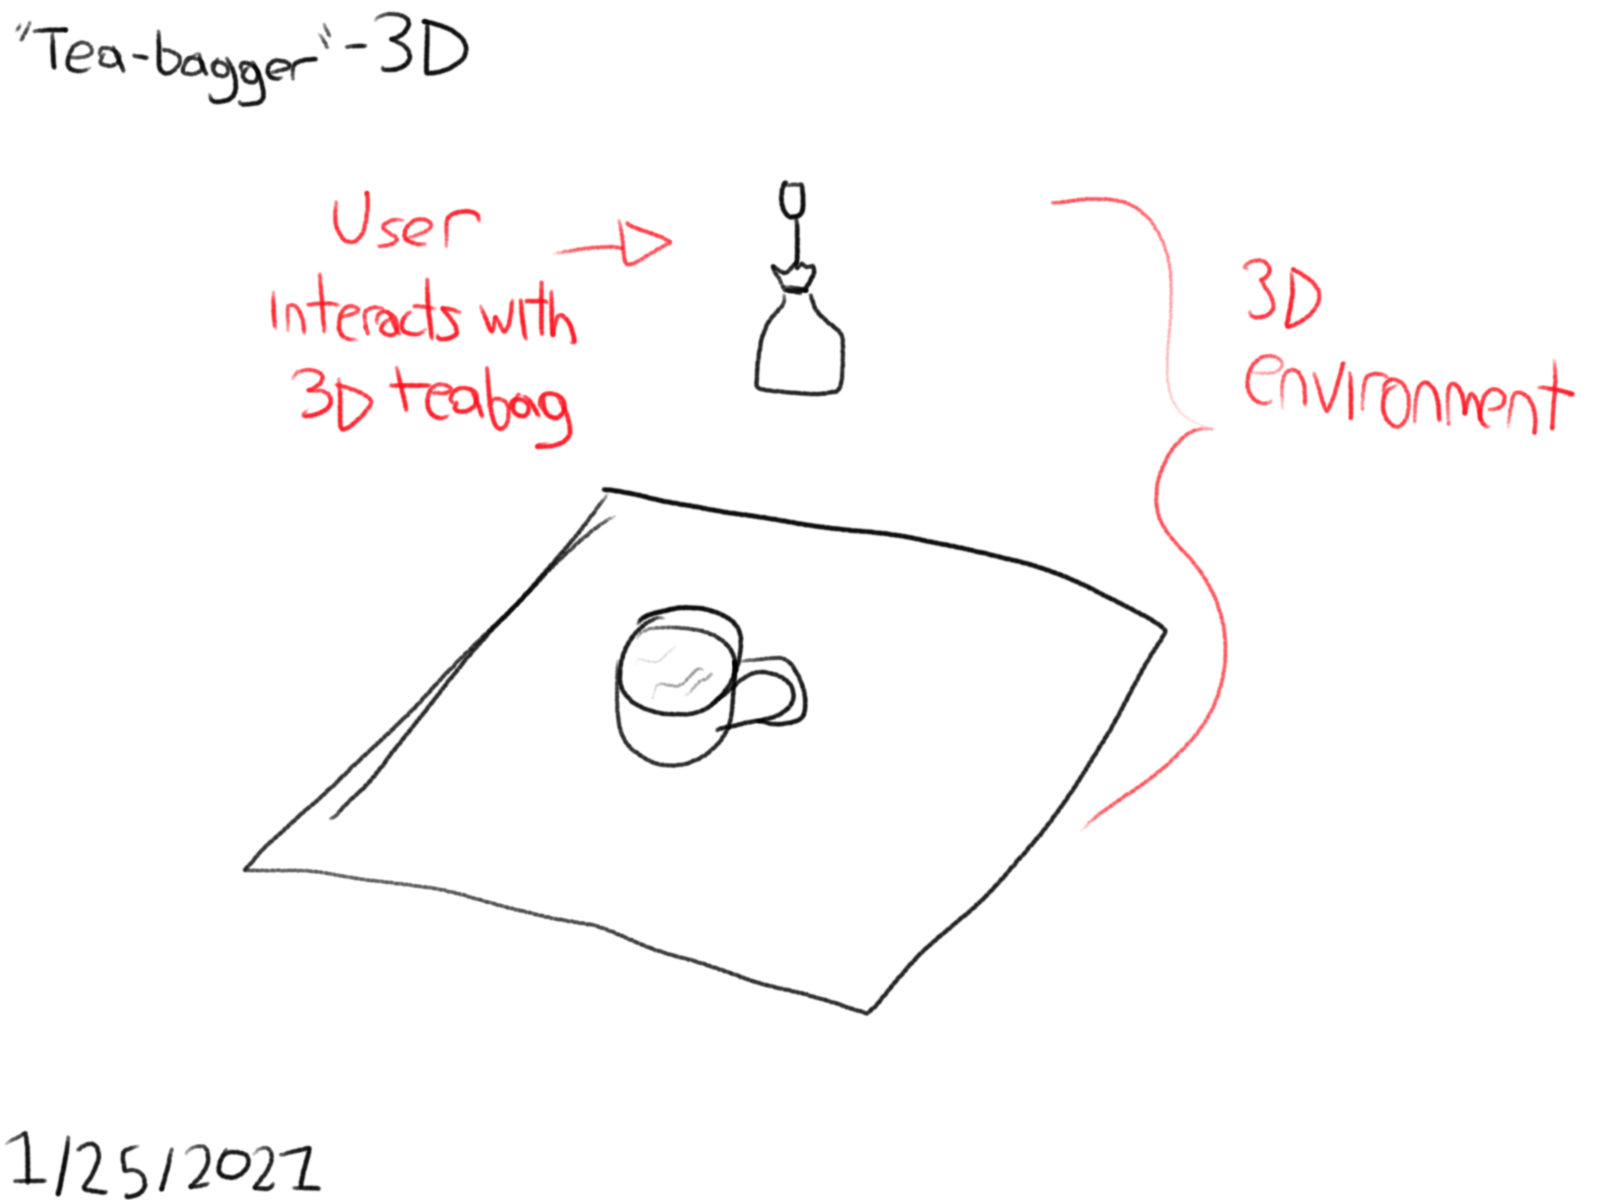 "Tea-bagger"-3D
User
interacts with
3D teabag
3D
environment
1/25/2021